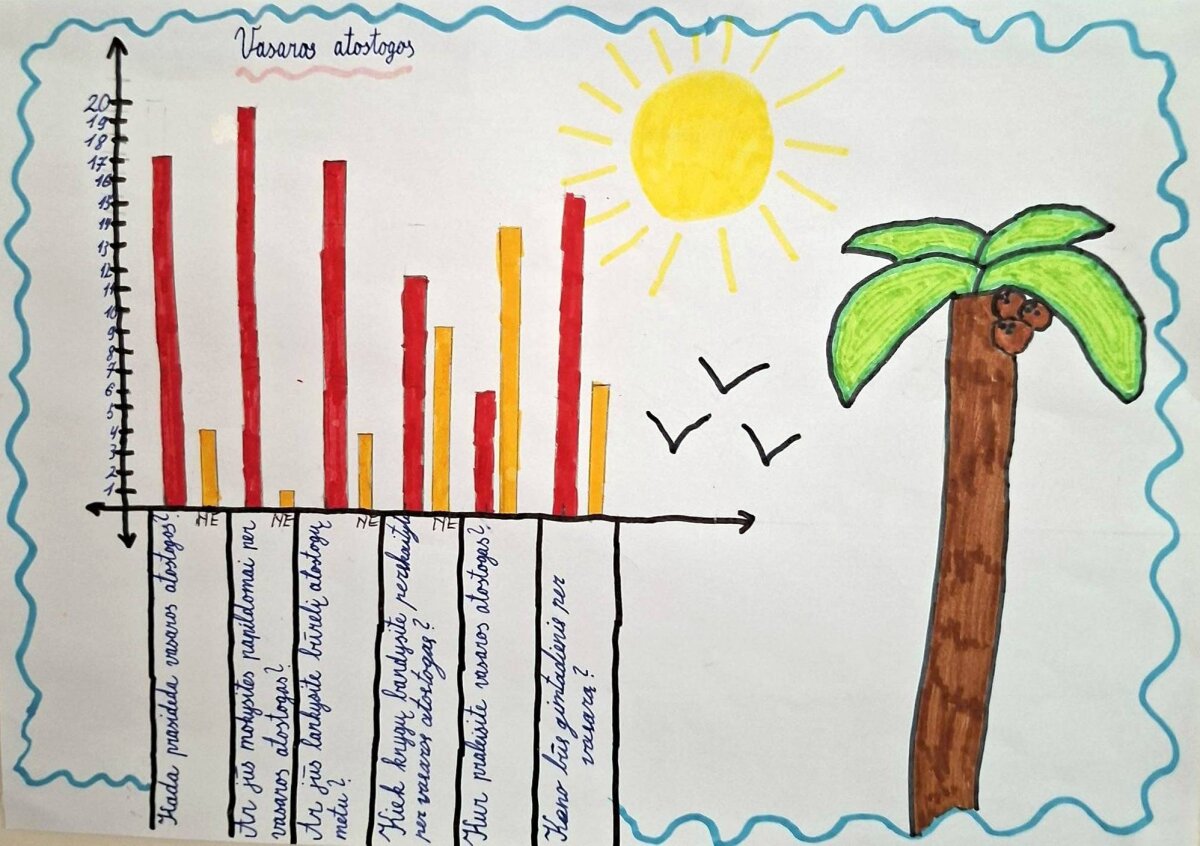 Vasaros atostogos
20
19
18
17
16
15
14
13
12
11
10
9
8
7
6
5
4
3
2
1
NE
NE
NE
NE
Kada prasideda vasaros atostogos?
Ar jūs mokysitės papildomai per
vasaros atostogas?
Ar jūs lankysite būrelį atostogų
metu?
Kiek knygų bandysite perskaityti
per vasaros atostogas?
Kur praleisite vasaros atostogas?
Keno būs gimtadienis per
vasarą?